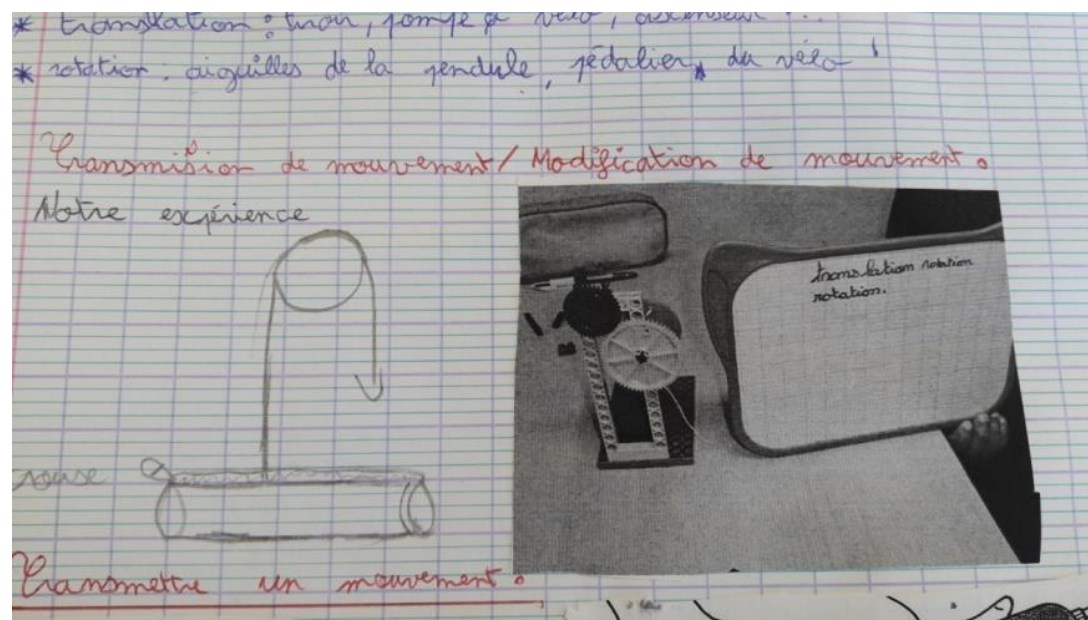 * translation : tiroir, pompe à vélo, ascenseur ...
* rotation : aiguilles de la pendule, pédalier du vélo !
Transmission de mouvement / Modification de mouvement.
Notre expérience
translation rotation
rotation.
Transmettre un mouvement.